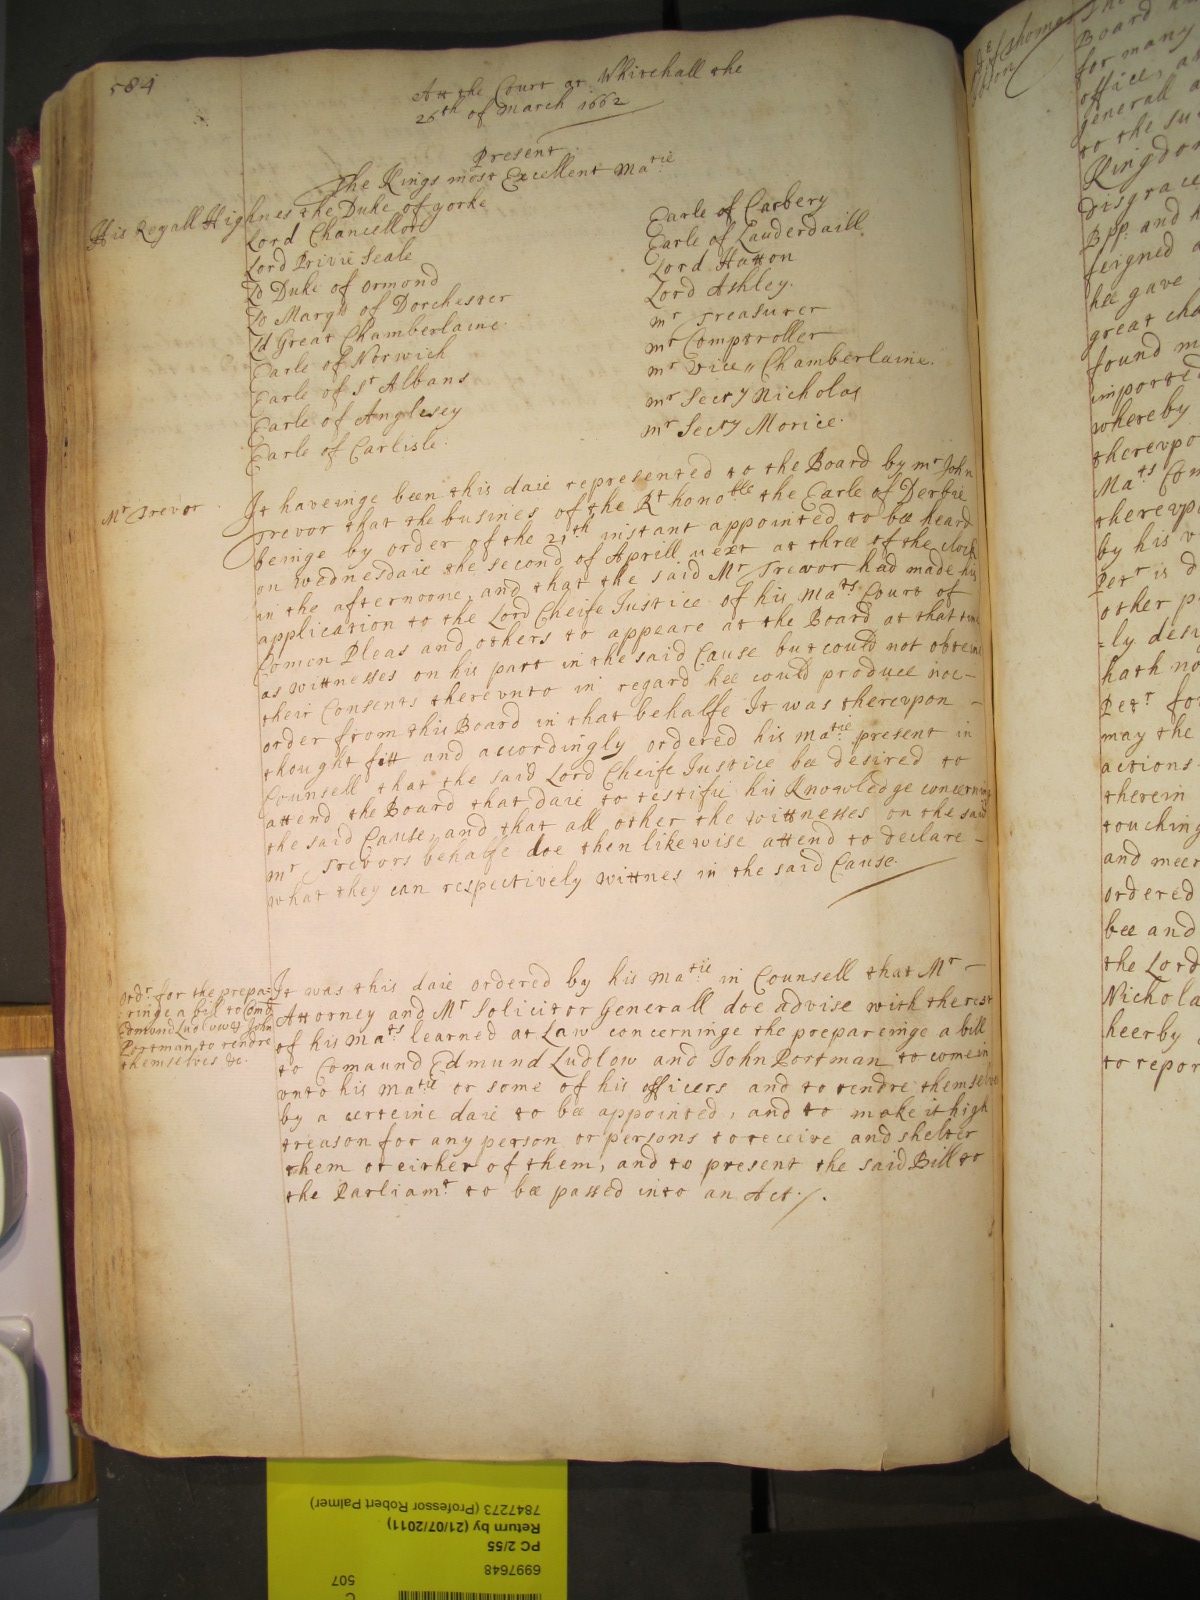 584
Att the Court at Whitehall the
26th of March 1662
Present
The Kings most Excellent Matie
His Royall Highnes the Duke of yorke
Lord Chancellor
Lord Privie Seale
Ld Duke of Ormond
Ld Marqs of Dorchester
Ld Great Chamberlaine
Earle of Norwich
Earle of St Albans
Earle of Anglesey
Earle of Carlisle.
Earle of Carbery
Earle of Lauderdaill
Lord Hatton
Lord Ashley.
mr Treasurer
mr Comptroller
mr Vice,, Chamberlaine.
mr Secry Nicholas
mr Secry Morice.
Mr Trevor
It haveinge been this daie represented to the Board by mr John
Trevor that the busines of the Rt honoble the Earle of Derbie
beinge by order of the 21th instant appointed to bee heard
on Wednesdaie the second of Aprill next at three of the clock
in the afternoone, and that the said Mr Trevor had made his
application to the Lord Cheife Justice of his Mats Court of
Comon Pleas and others to appeare at the Board at that time
as wittnesses on his part in the said Cause but could not obteine
their Consents therevnto in regard hee could produce noe-
order from this Board in that behalfe It was therevpon -
thought fitt and accordingly ordered his Matie present in
Counsell that the said Lord Cheife Justice bee desired to
attend the Board that daie to testifie his Knowledge concerning
the said Cause, and that all other the wittnesses on the said
mr Trevors behalfe doe then likewise attend to declare -
what they can respectively wittnes in the said Cause.
Ordr for the prepa=
ringe a bill to Comd
Edmund Ludlow & John
Portman to rendre
themselves &c.
It was this daie ordered by his Matie in Counsell that Mr -
Attorney and Mr Solicitor Generall doe advise with the rest
of his Mats learned at Law concerninge the prepareinge a bill
to Comaund Edmund Ludlow and John Portman to come in
vnto his Matie or some of his officers and to rendre themselves
by a certeine daie to bee appointed, and to make it high
treason for any person or persons to receive and shelter
them or either of them, and to present the said Bill to
the Parliamt to bee passed into an Act./.
Board
for many
office, a
generall a
to the su
Kingdo
disgrace
Bpp. and h
feigned a
hee gave
great cha
found m
imported
whereby
therevpo
Mats Com
therevp
by his v
Petr is d
other p
=ly desi
hath no
Petr fo
may the
actions
therein
touching
and meer
ordered
bee and
the Lord
Nichola
heerby
to repor
507
6997648
PC 2/55
Return by (21/07/2011)
7847273 (Professor Robert Palmer)